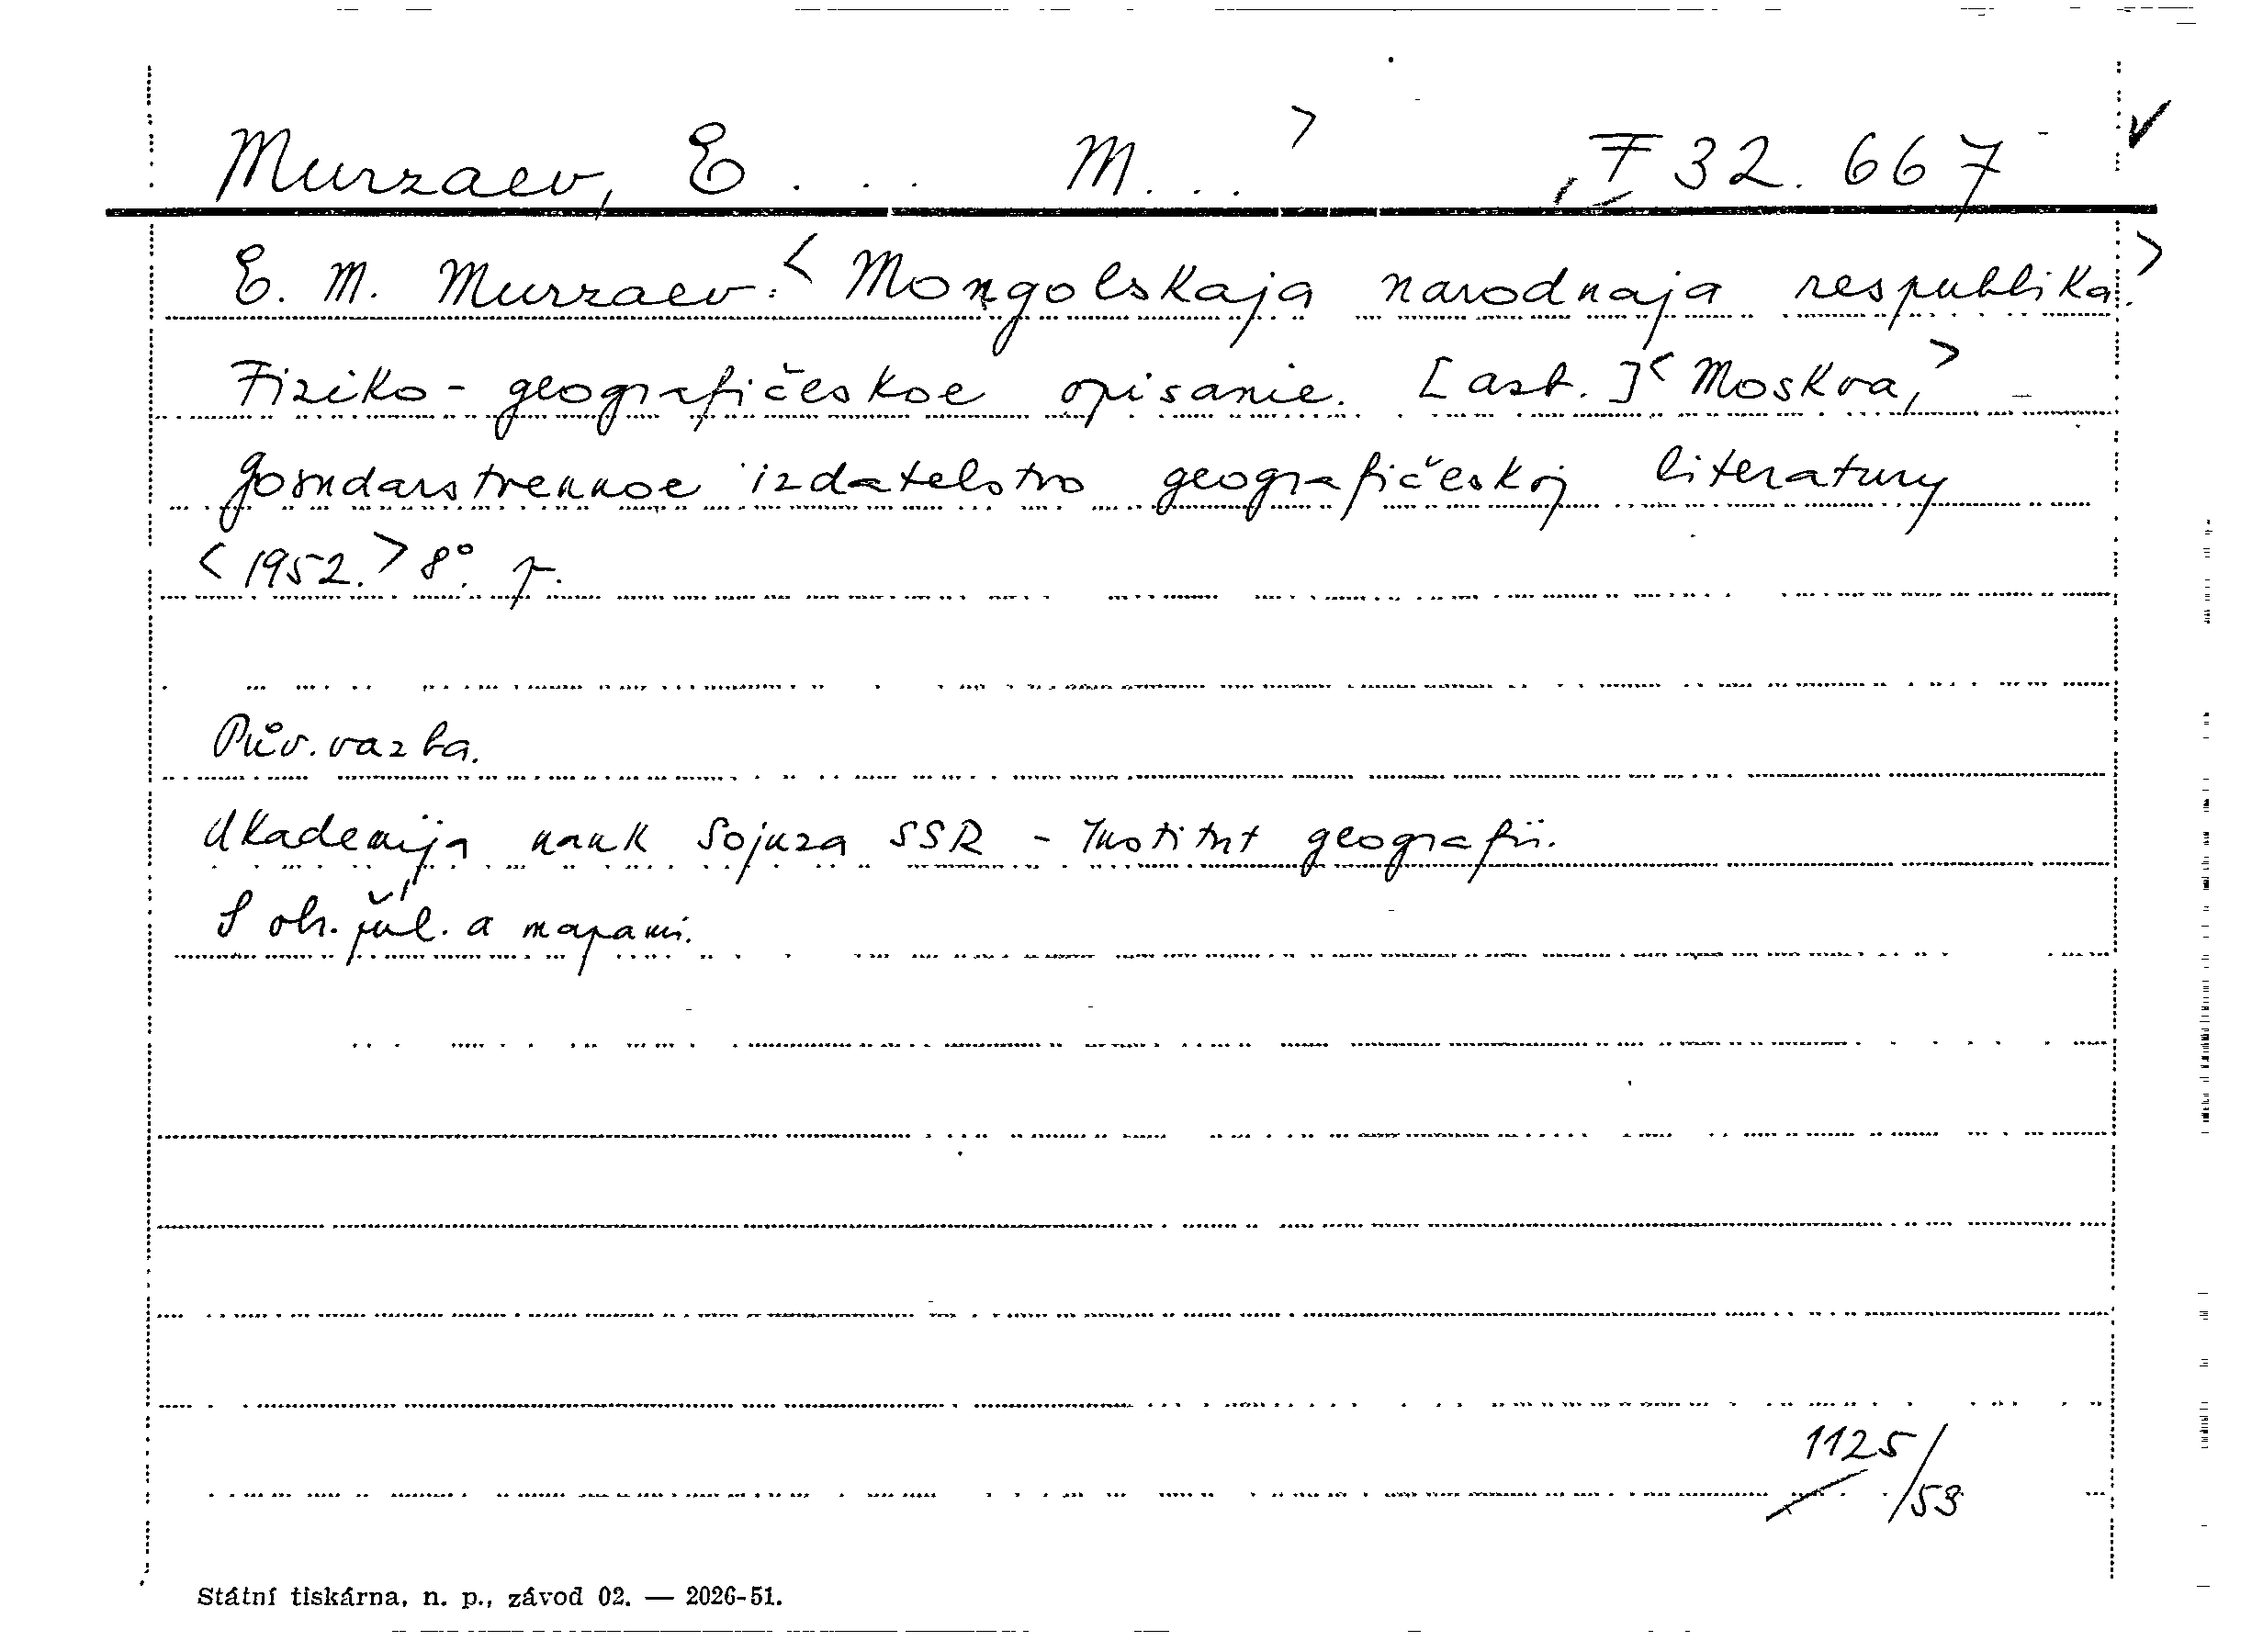 Murzaev, E... M...> F 32.667
E. M. Murzaev: <Mongolskaja narodnaja respublika.>
Fiziko-geografičeskoe opisanie. [Aut.] <Moskva,>
Gosudarstvennoe izdatelstvo geografičeskoj literatury
<1952.> 8°. r.
Pův. vazba.
Akademija nauk Sojuza SSR - Institut geografii.
S obr. příl. a mapami.
1125/53
Státní tiskárna, n. p., závod 02. — 2026-51.